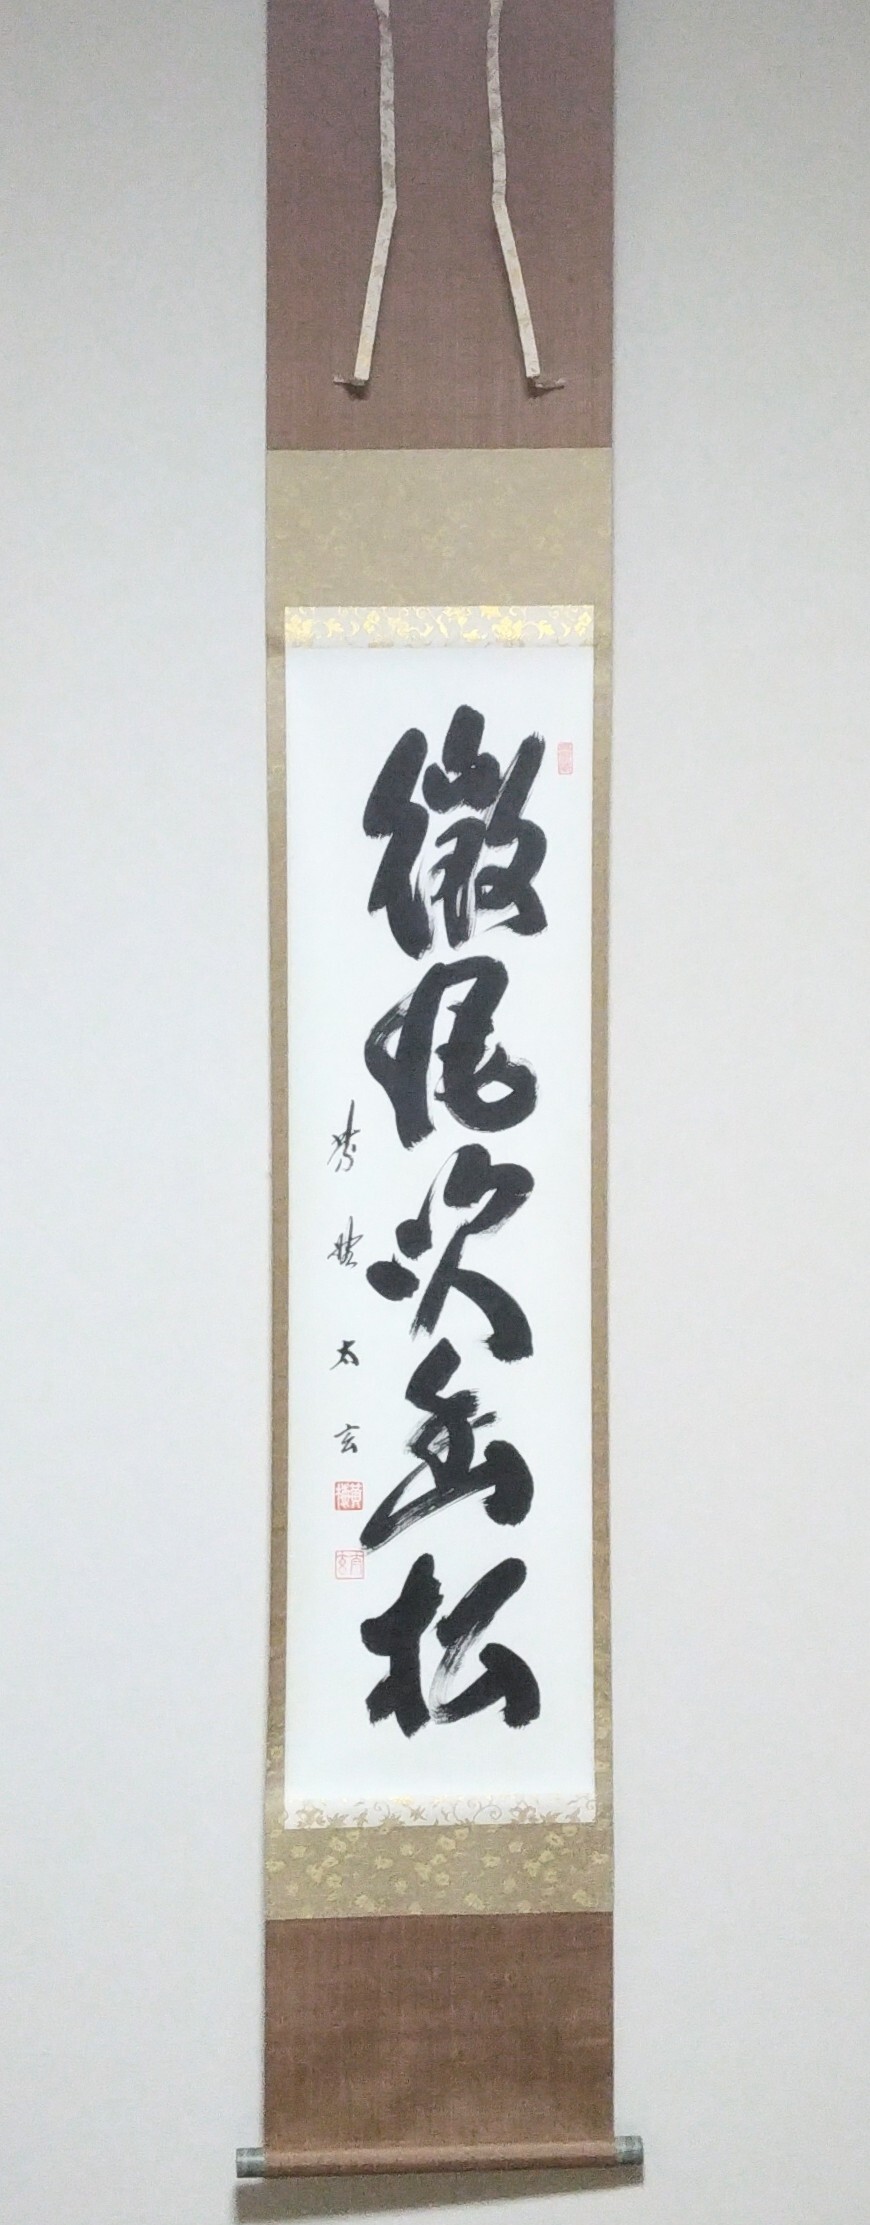 微風吹幽松
紫野太玄